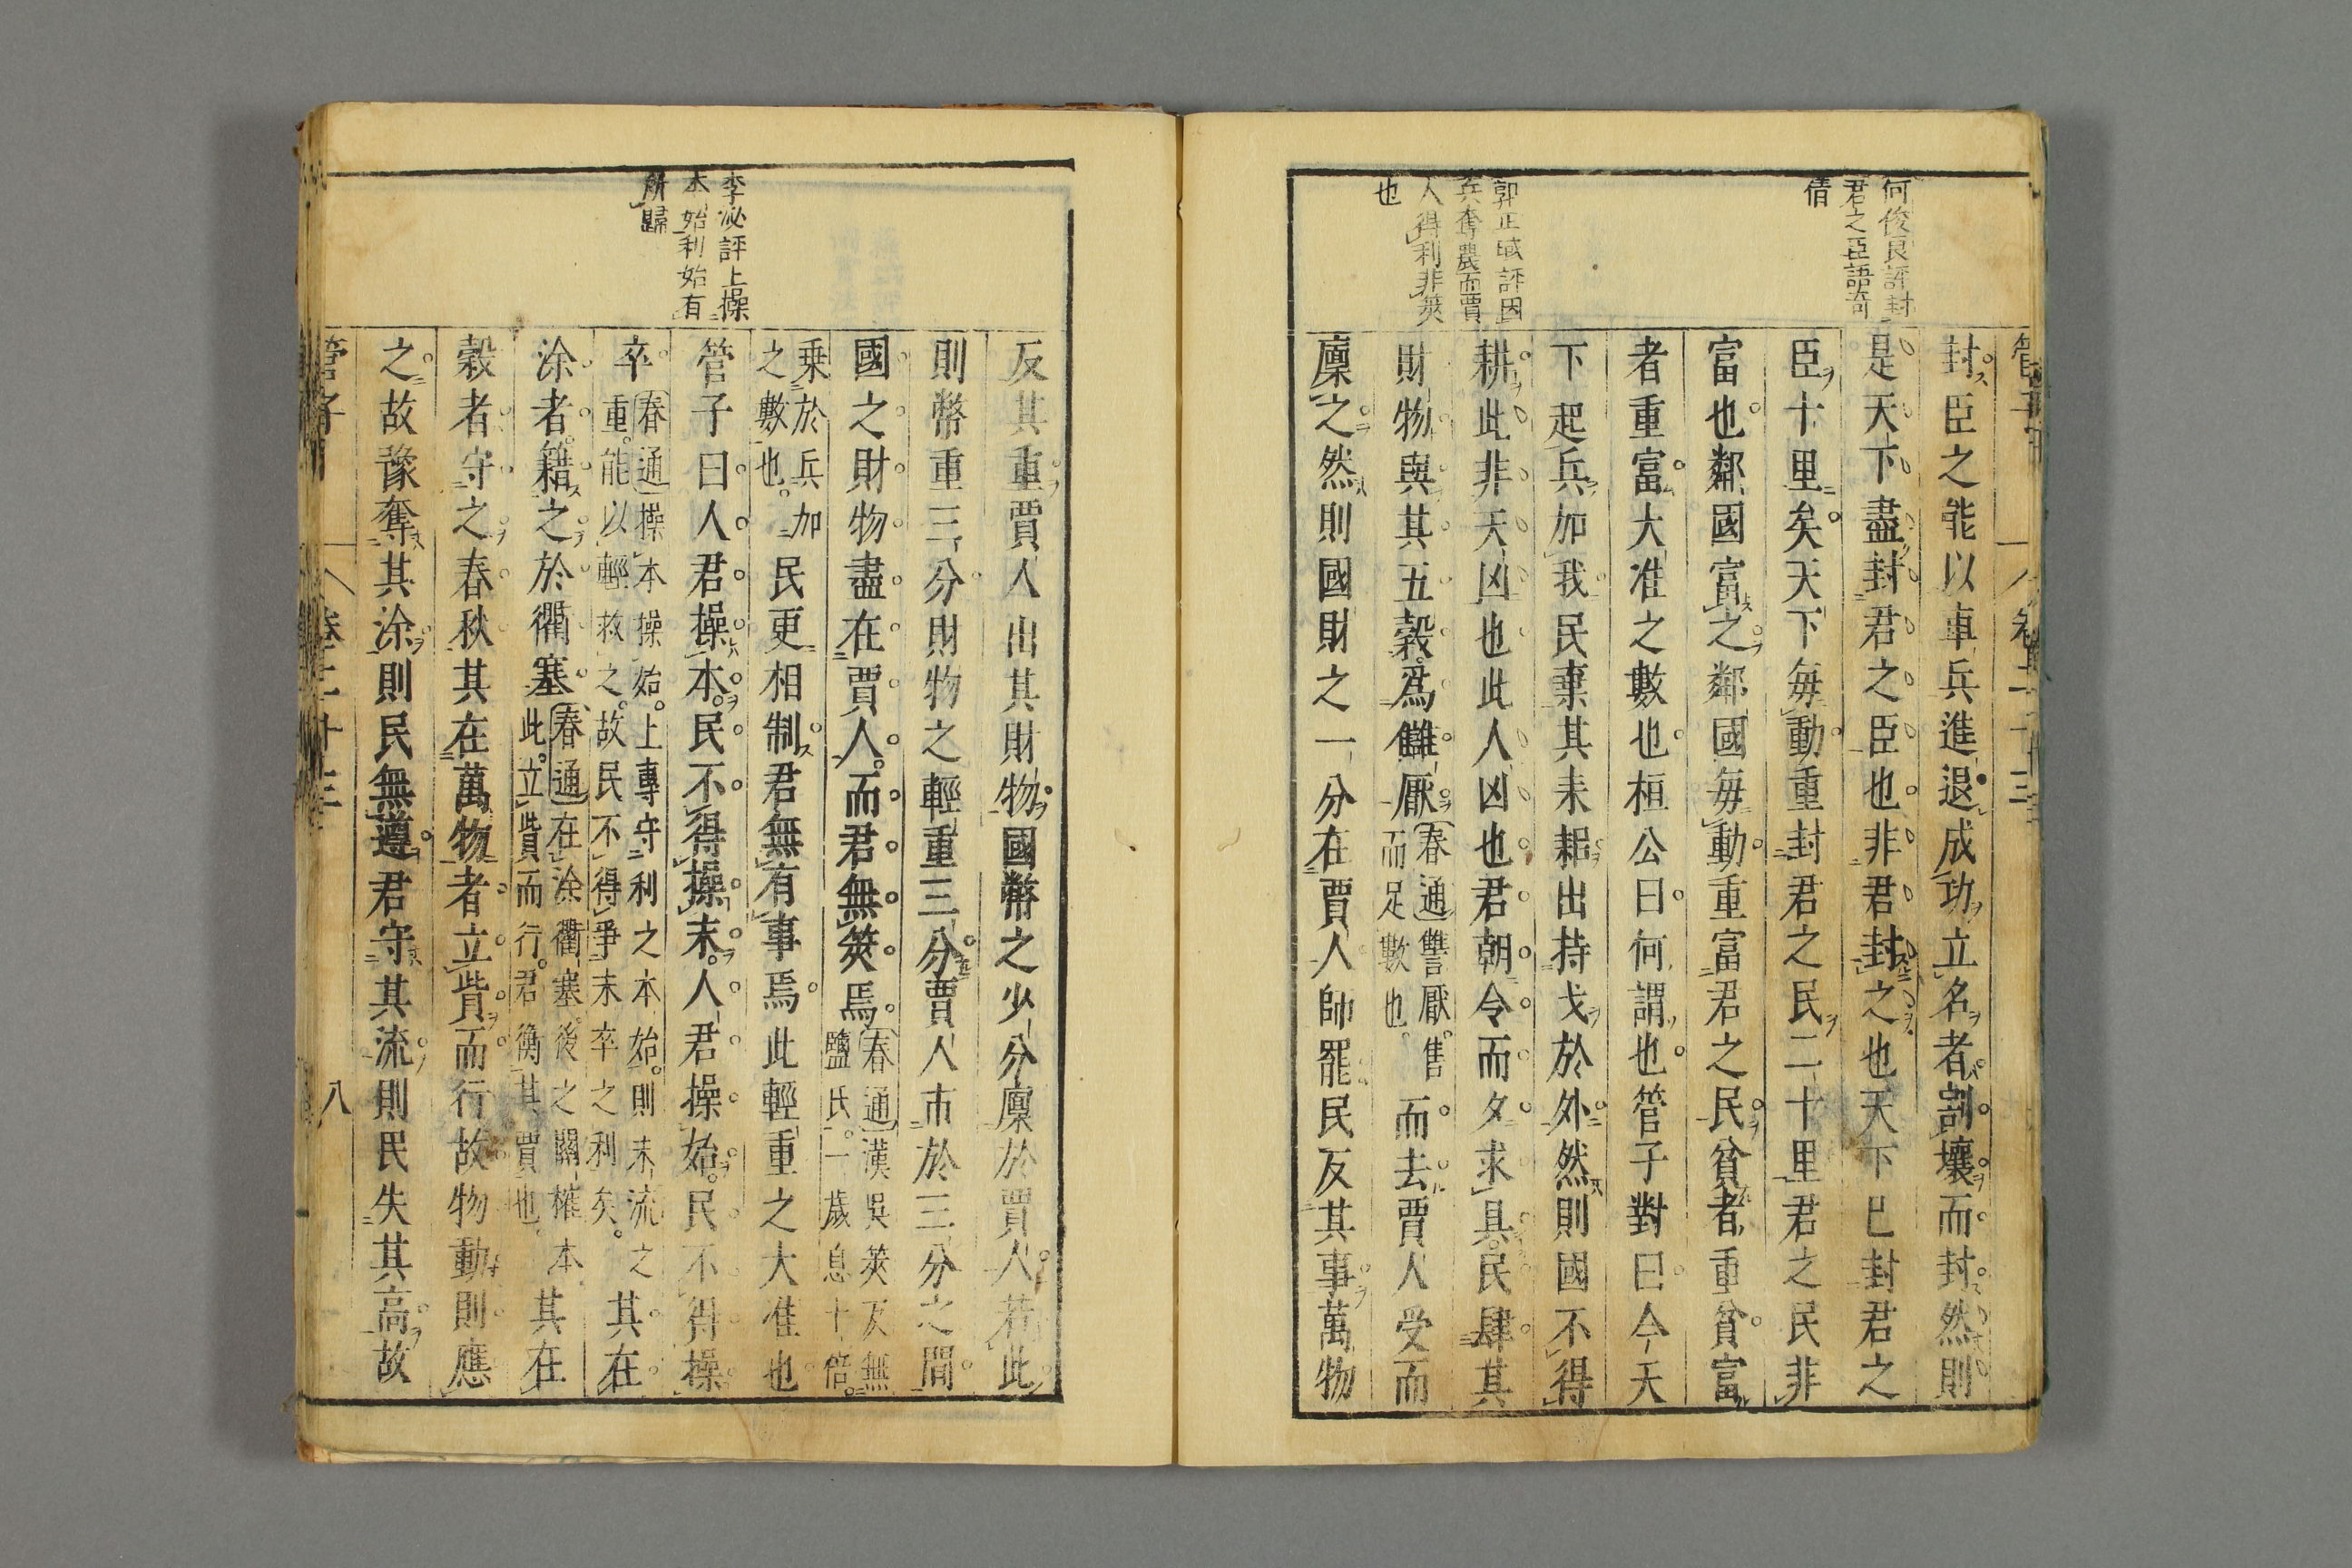 何俊良評封
君之臣語奇
倩
郭正域評因
兵奪農而賈
人得利非筴
也
封臣之能以車兵進退成功立名者割壤而封然則
是天下盡封君之臣也非君封之也天下已封君之
臣十里矣天下每動重封君之民二十里君之民非
富也鄰國富之鄰國每動重富君之民貧者重貧富
者重富大准之數也桓公曰何謂也管子對曰今天
下起兵加我民棄其耒耜出持戈於外然則國不得
耕此非天凶也此人凶也君朝令而夕求具民肆其
財物與其五穀爲讎厭春通讐厭售
而足數也而去賈人受而
廩之然則國財之一分在賈人師罷民反其事萬物
李泌評上操
本始利始有
所歸
反其重賈人出其財物國幣之少分廩於賈人若此
則幣重三分財物之輕重三分賈人市於三分之間
國之財物盡在賈人而君無筴焉春通漢吳筴反無
鹽氏一歲息十倍
乗於兵加
之數也民更相制君無有事焉此輕重之大准也
管子曰人君操本民不得操末人君操始民不得操
卒春通操本操始上專守利之本始則末流之
重能以輕救之故民不得爭末卒之利矣其在
涂者籍之於衢塞春通在涂衢塞後之關榷本
此立貲而行君衡其賈也其在
穀者守之春秋其在萬物者立貲而行故物動則應
之故豫奪其涂則民無遵君守其流則民失其高故
管子 卷二十三 八